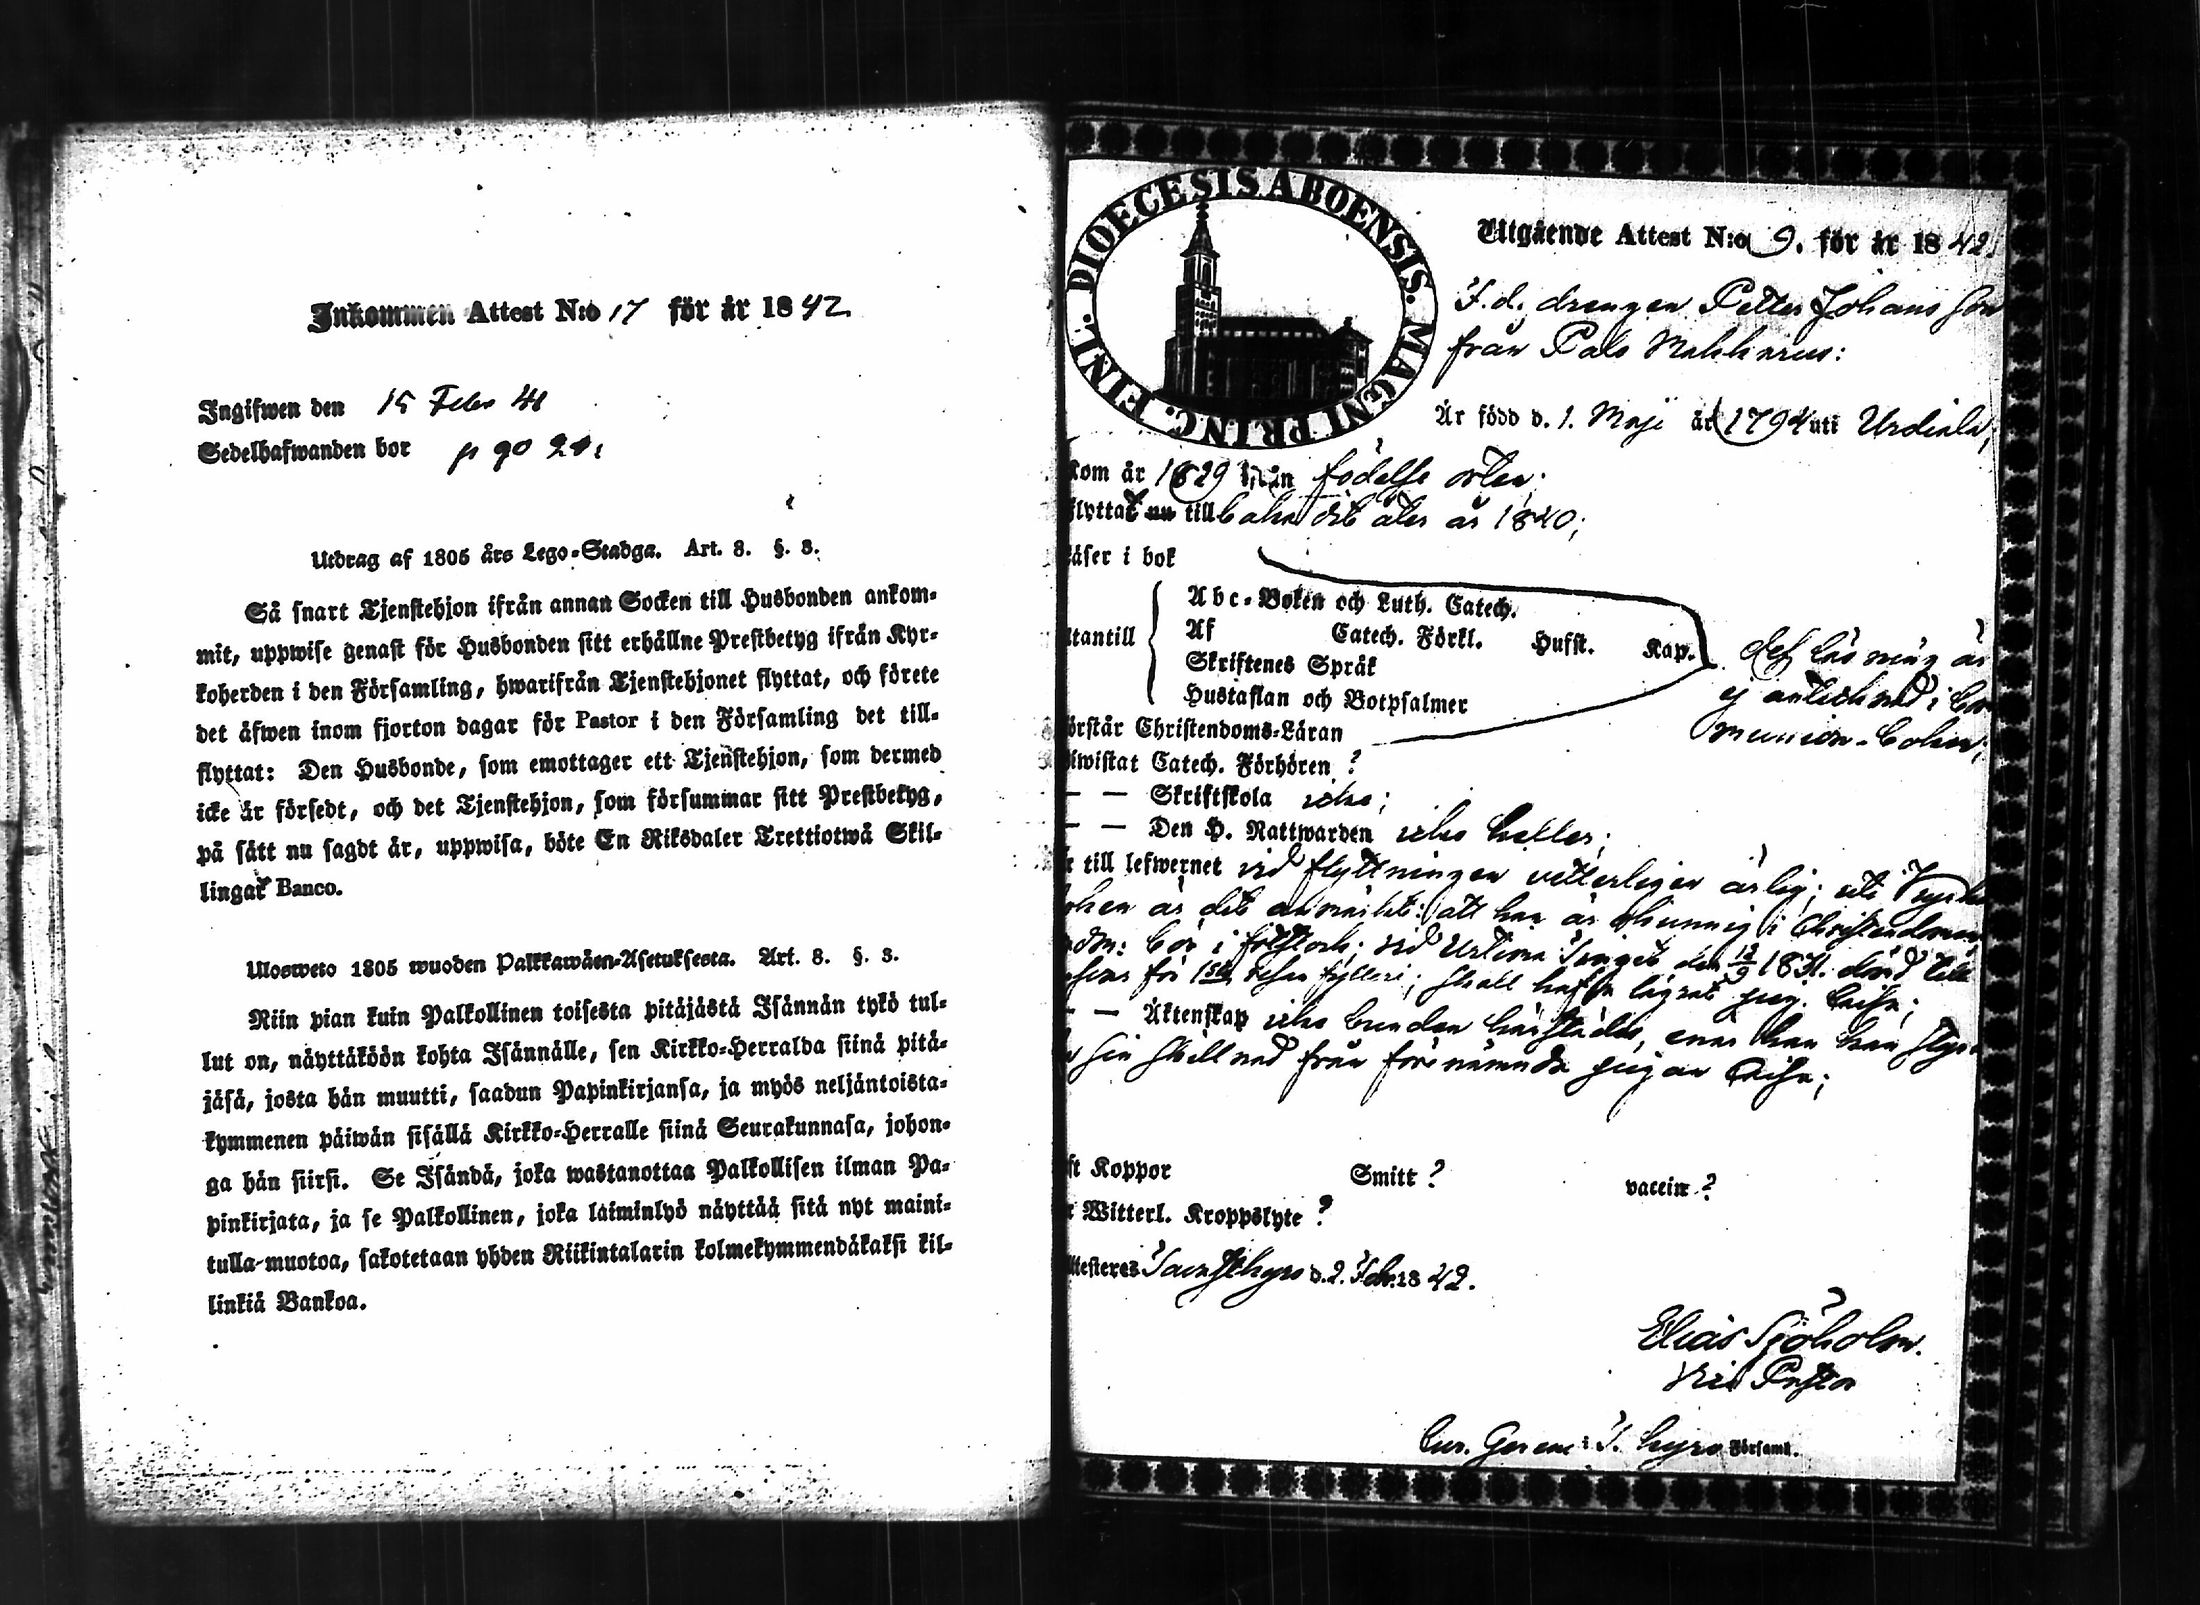 Inkommen Attest N:o 17 för år 1842.
Ingifwen den 15 Febr 41
Sedelhafwanden bor p 90
Utdrag af 1805 års Lego-Stadga. Art. 8. §. 3.
Så snart Tjenstehjon ifrån annan Socken till Husbonden ankom-
mit, uppwise genast för Husbonden sitt erhållne Prestbetyg ifrån Kyr-
koherden i den Församling, hwarifrån Tjenstehjonet flyttat, och förete
det äfwen inom fjorton dagar för Pastor i den Församling det till-
flyttat: Den Husbonde, som emottager ett Tjenstehjon, som dermed
icke är försedt, och det Tjenstehjon, som försummar sitt Prestbetyg,
på sätt nu sagdt är, uppwisa, böte En Riksdaler Trettiotwå Skil-
lingar Banco.
Ulosweto 1805 wuoden Palkkawäen-Asetuksesta. Art. 8. §. 3.
Niin pian kuin Palkollinen toisesta pitäjästä Isännän tykö tul-
lut on, näyttäköön kohta Isännälle, sen Kirkko-Herralda siinä pitä-
jäsä, josta hän muutti, saadun Papinkirjansa, ja myös neljäntoista-
kymmenen päiwän sisällä Kirkko-Herralle siinä Seurakunnasa, johon-
ga hän siirsi. Se Isändä, joka wastanottaa Palkollisen ilman Pa-
pinkirjata, ja se Palkollinen, joka laiminlyö näyttää sitä nyt maini-
tulla-muotoa, sakotetaan yhden Riikintalarin kolmekymmendäkaksi kil-
linkiä Bankoa.
DIOECESIS ABOENSIS. MAGNI PRINC. FINL.
Utgående Attest N:o 9. för år 1842.
F. d. drengen Petter Johansson
från Pals
Är född d. 1. Maji år 1794 uti Urdiala;
Kom år 1829 från födelse orten;
flyttat till år 1840;
läser i bok
Abc-Boken och Luth. Catech.
Af Catech. Förkl. Hufst. Kap.
utantill
Skriftenes Språk
Hustaflan och Botpsalmer
des läsning är
ej antecknad i Co-
munion-boken;
förstår Christendoms-Läran
biwistat Catech. Förhören ?
— — Skriftskola icke;
— — Den H. Nattwarden icke heller;
är till lefwernet wid flyttningen vetterligen ärlig; uti Kyrko
boken är det anmärkt: att han är okunnig i Christendomen
wid Urtima Tinget den 18
för 1sta resan fylleri; skall hafva lägrat pig.
— — Äktenskap icke bunden härstädes, enär han
sin skillnad från förenämnda pigan
haft Koppor Smitt ? vaccin ?
är Witterl. Kroppslyte ?
Attesteres d. 2. Febr. 1842.
Elias Sjöholm.
Vice Pastor
Församl.